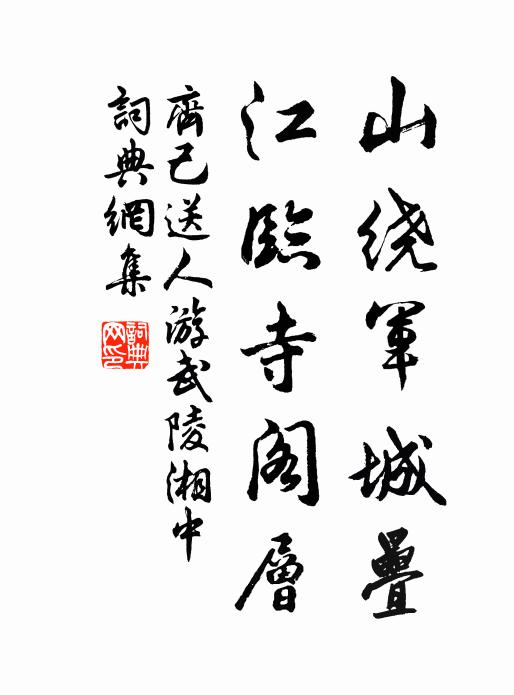 山绕軍城疊
江臨寺阁層
齊己送人游武陵湘中
詞典網集
詞典網印